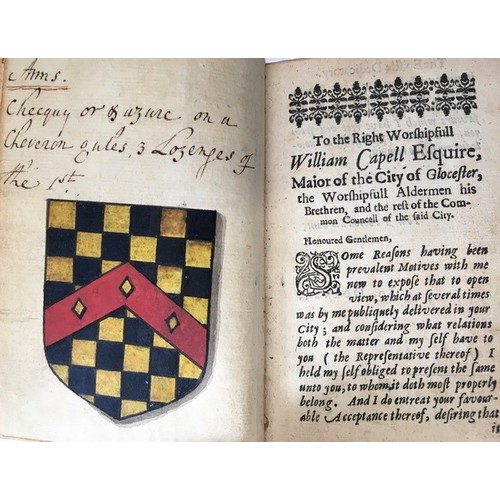 Arms.
Checquy or & azure on a
Cheveron gules, 3 Lozenges of
the 1st.
To the Right Worshipfull
William Capell Esquire,
Maior of the City of Glocester,
the Worshipfull Aldermen his
Brethren, and the rest of the Com-
mon Councell of the said City.
Honoured Gentlemen,
Some Reasons having been
prevalent Motives with me
now to expose that to open
view, which at several times
was by me publiquely delivered in your
City; and considering what relations
both the matter and my self have to
you ( the Representative thereof ) I
held my self obliged to present the same
unto you, to whom it doth most properly
belong. And I do entreat your favour-
able Acceptance thereof, desiring that